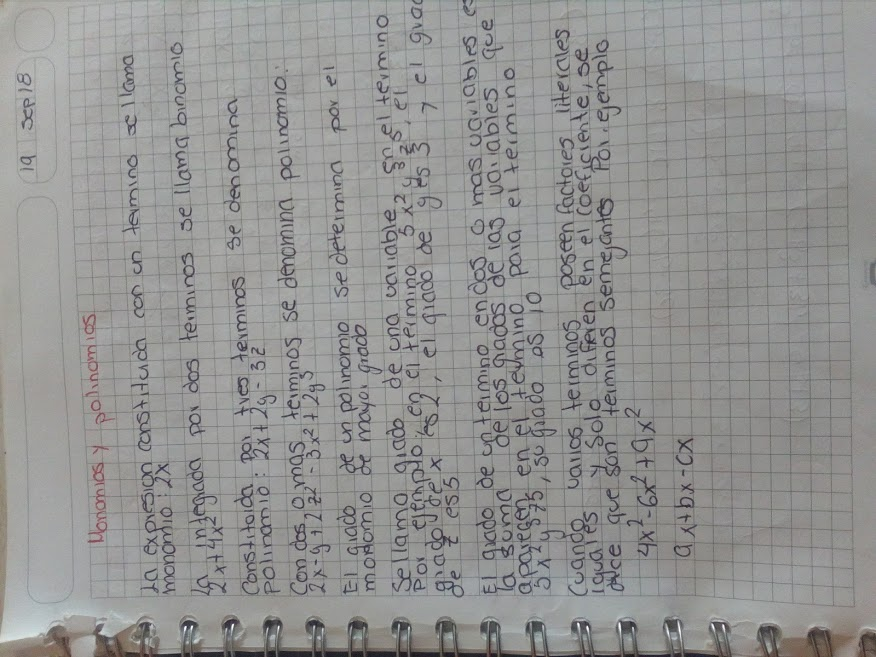 19 Sep 18
Monomios y polinomios
La expresion constituida con un termino se llama
monomio: 2x
La integrada por dos terminos se llama binomio
2x+4x²
Constituida por tres terminos se denomina
polinomio: 2x+2y-3z
Con dos o mas terminos se denomina polinomio:
2x-y+2z²-3x²+2y³
El grado de un polinomio se determina por el
monomio de mayor grado
Se llama grado de una variable, en el termino
Por ejemplo: en el termino 5x²y³z⁵, el
grado de x es 2, el grado de y es 3 y el grad
de z es 5
El grado de un termino en dos o mas variables es
la suma de los grados de las variables que
aparecen en el termino para el termino
5x²y³z⁵, su grado es 10
Cuando varios terminos poseen factores literales
iguales y solo difieren en el coeficiente, se
dice que son terminos semejantes Por ejemplo
4x²-6x²+9x²
ax+bx-cx